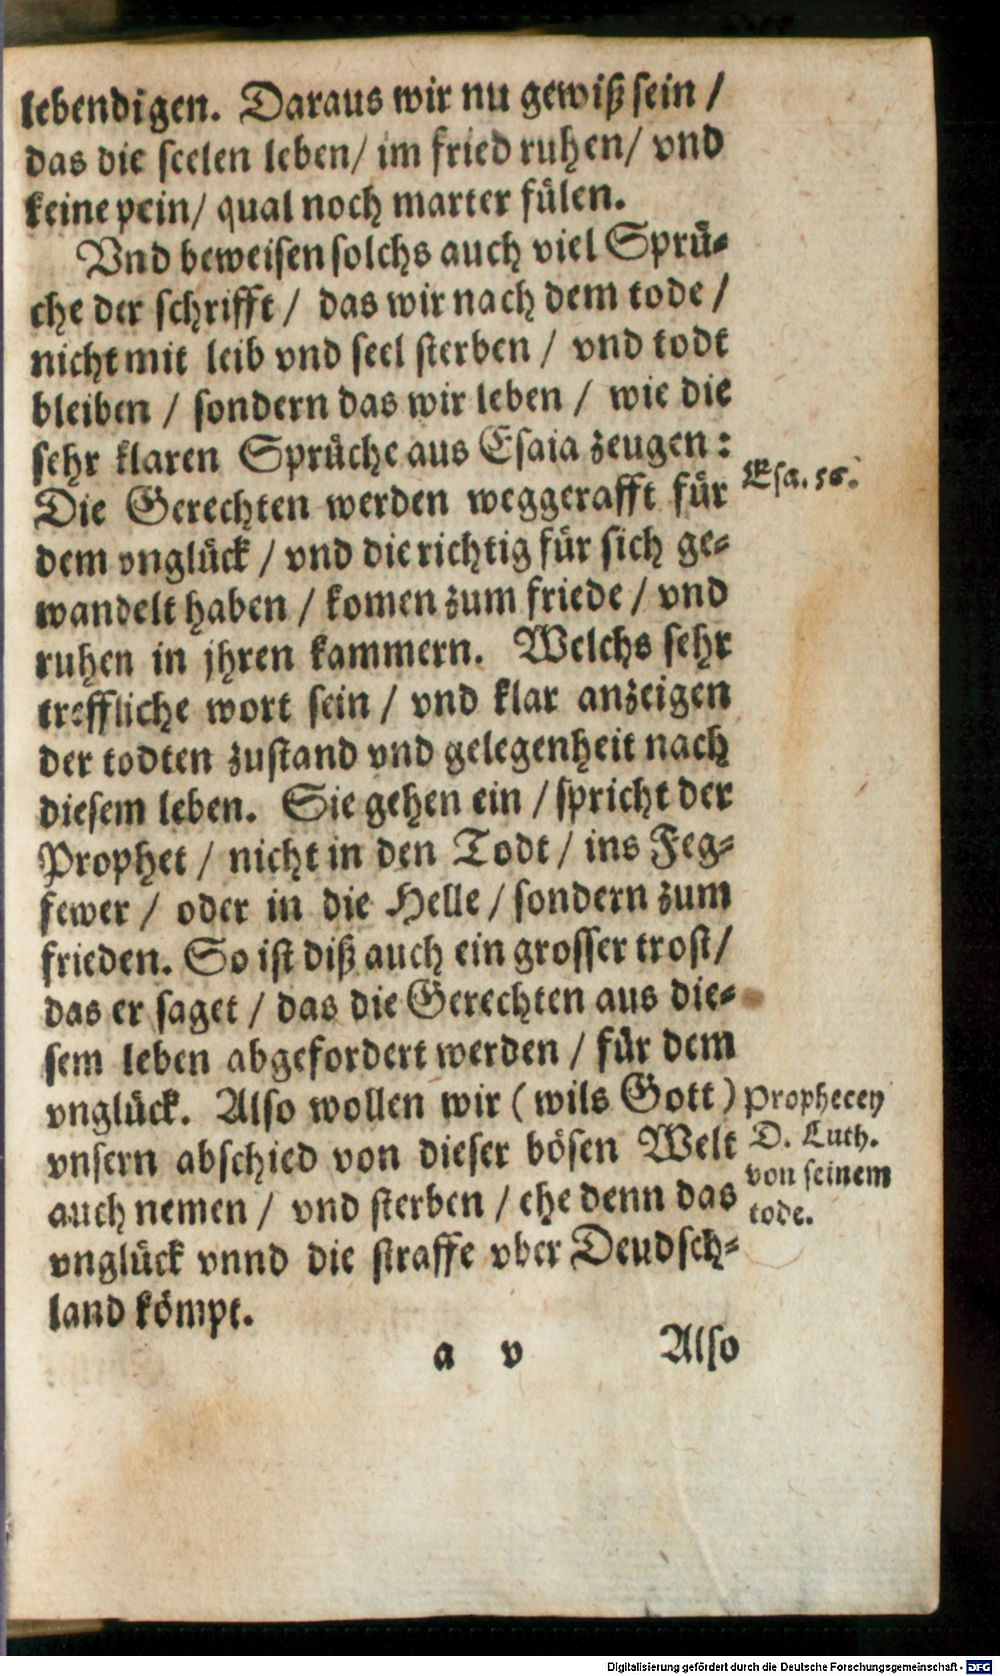 lebendigen. Daraus wir nu gewiß sein /
das die seelen leben / im fried ruhen / vnd
keine pein / qual noch marter fülen.
Vnd beweisen solchs auch viel Sprü-
che der schrifft / das wir nach dem tode /
nicht mit leib vnd seel sterben / vnd todt
bleiben / sondern das wir leben / wie die
sehr klaren Sprüche aus Esaia zeugen:
Die Gerechten werden weggerafft für
Esa. 56.
dem vnglück / vnd die richtig für sich ge-
wandelt haben / komen zum friede / vnd
ruhen in jhren kammern. Welchs sehr
treffliche wort sein / vnd klar anzeigen
der todten zustand vnd gelegenheit nach
diesem leben. Sie gehen ein / spricht der
Prophet / nicht in den Todt / ins Feg-
fewer / oder in die Helle / sondern zum
frieden. So ist diß auch ein grosser trost /
das er saget / das die Gerechten aus die-
sem leben abgefordert werden / für dem
vnglück. Also wollen wir ( wils Gott )
vnsern abschied von dieser bösen Welt
auch nemen / vnd sterben / ehe denn das
vnglück vnnd die straffe vber Deudsch-
land kömpt.
Prophecey
D. Luth.
von seinem
tode.
a v
Also
Digitalisierung gefördert durch die Deutsche Forschungsgemeinschaft - DFG